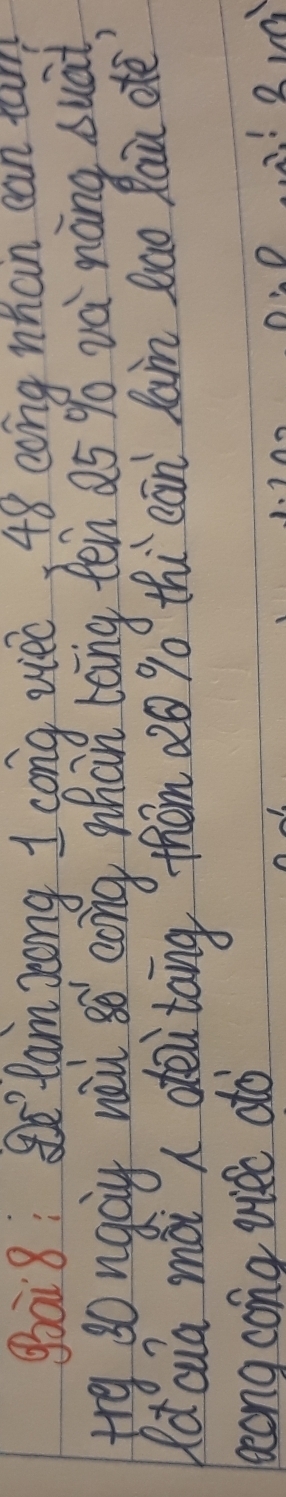 Bài 8: Để làm xong 1 công việc, 48 công nhân cần làm
trg 30 ngày nếu số công nhân tăng lên 25 % và năng suất,
lđ của mỗi ng đều tăng thêm 20 % thì cần làm bao lâu để
xong công việc đó